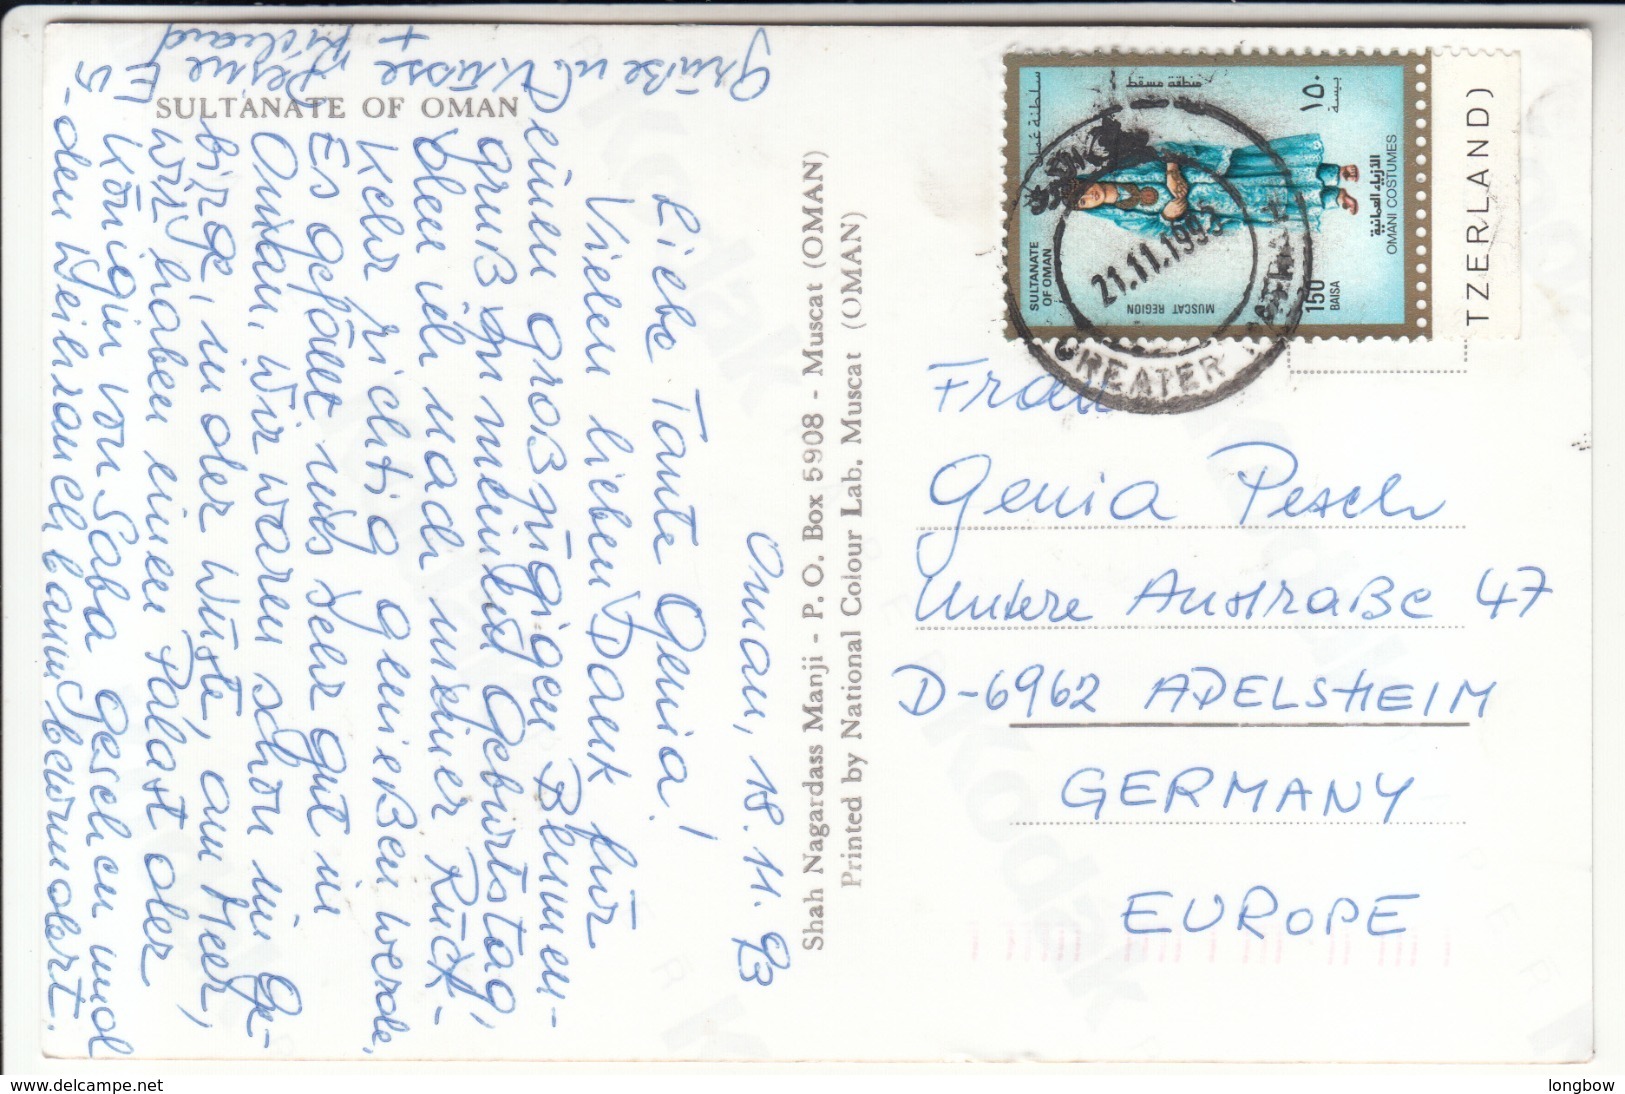 SULTANATE OF OMAN
Oman, 18. 11. 93
Liebe Tante Genia!
Vielen lieben Dank für
Deinen großzügigen Blumen-
gruß zu meinem Geburtstag,
den ich nach meiner Rück-
kehr richtig genießen werde.
Es gefällt uns sehr gut in
Oman, wir waren schon im Ge-
birge, in der Wüste, am Meer,
wir haben einen Palast der
Königin von Saba gesehen und
den Weihrauchbaum bewundert.
Grüße u.
Küsse
+ Richard
Shah Nagardass Manji - P. O. Box 5908 - Muscat (OMAN)
Printed by National Colour Lab. Muscat (OMAN)
سلطنة عمان
منطقة مسقط
١٥٠
بيسة
الازياء العمانية
OMANI COSTUMES
SULTANATE
OF OMAN
MUSCAT REGION
150
BAISA
TZERLAND)
21.11.1993
GREATER
Frau
Genia Pesch
Untere Austraße 47
D-6962 ADELSHEIM
GERMANY
EUROPE
Kodak
www.delcampe.net
longbow